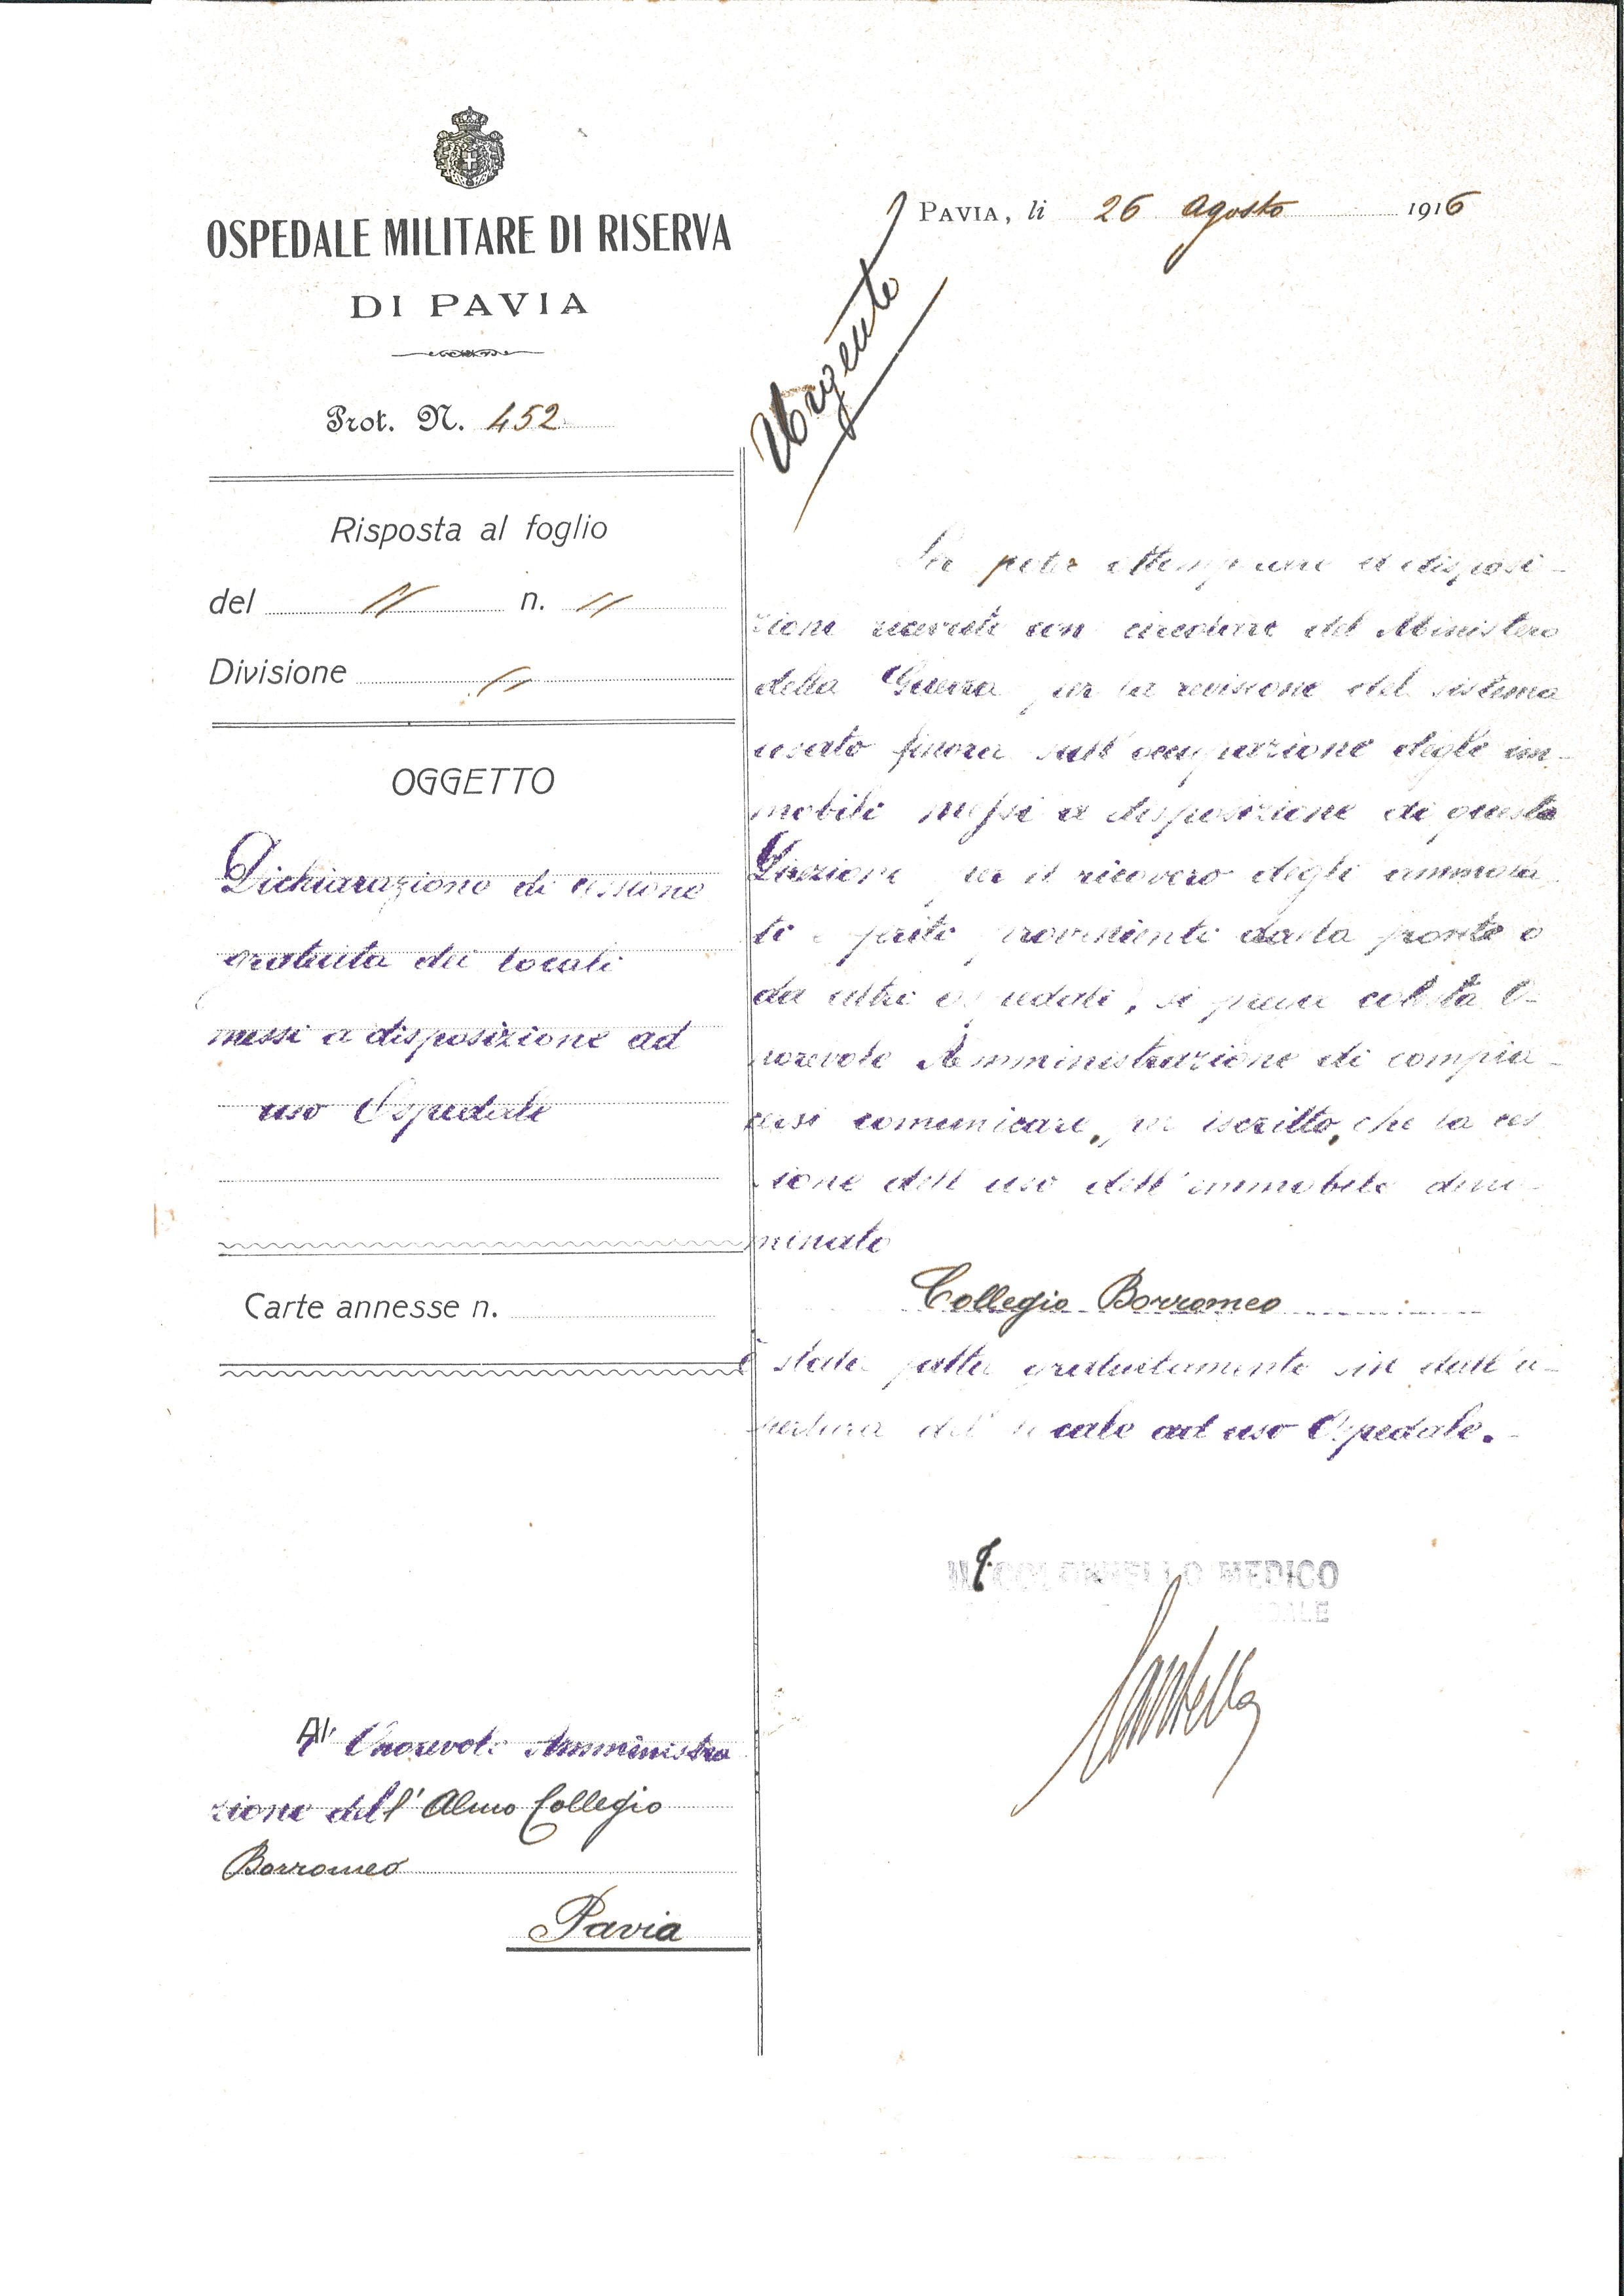 OSPEDALE MILITARE DI RISERVA
DI PAVIA
Prot. N. 452
Risposta al foglio
del " n. "
Divisione "
OGGETTO
Dichiarazione di cessione
gratuita dei locali
messi a disposizione ad
uso Ospedale
Carte annesse n.
All' Onorevole Amministra
zione dell' Almo Collegio
Borromeo
Pavia
PAVIA, li 26 Agosto 1916
Urgente
Per poter ottemperare a disposi-
zioni ricevute con circolare del Ministero
della Guerra per la revisione del sistema
usato finora sull'occupazione degli im-
mobili messi a disposizione di questa
Direzione per il ricovero degli ammala
ti e feriti provenienti dalla fronte o
da altri ospedali, si prega cotesta O-
norevole Amministrazione di compia-
cersi comunicare, per iscritto, che la ces
sione dell'uso dell'immobile deno-
minato
Collegio Borromeo
è stata fatta gratuitamente sin dall'a-
pertura del locale ad uso Ospedale.
COLONNELLO MEDICO